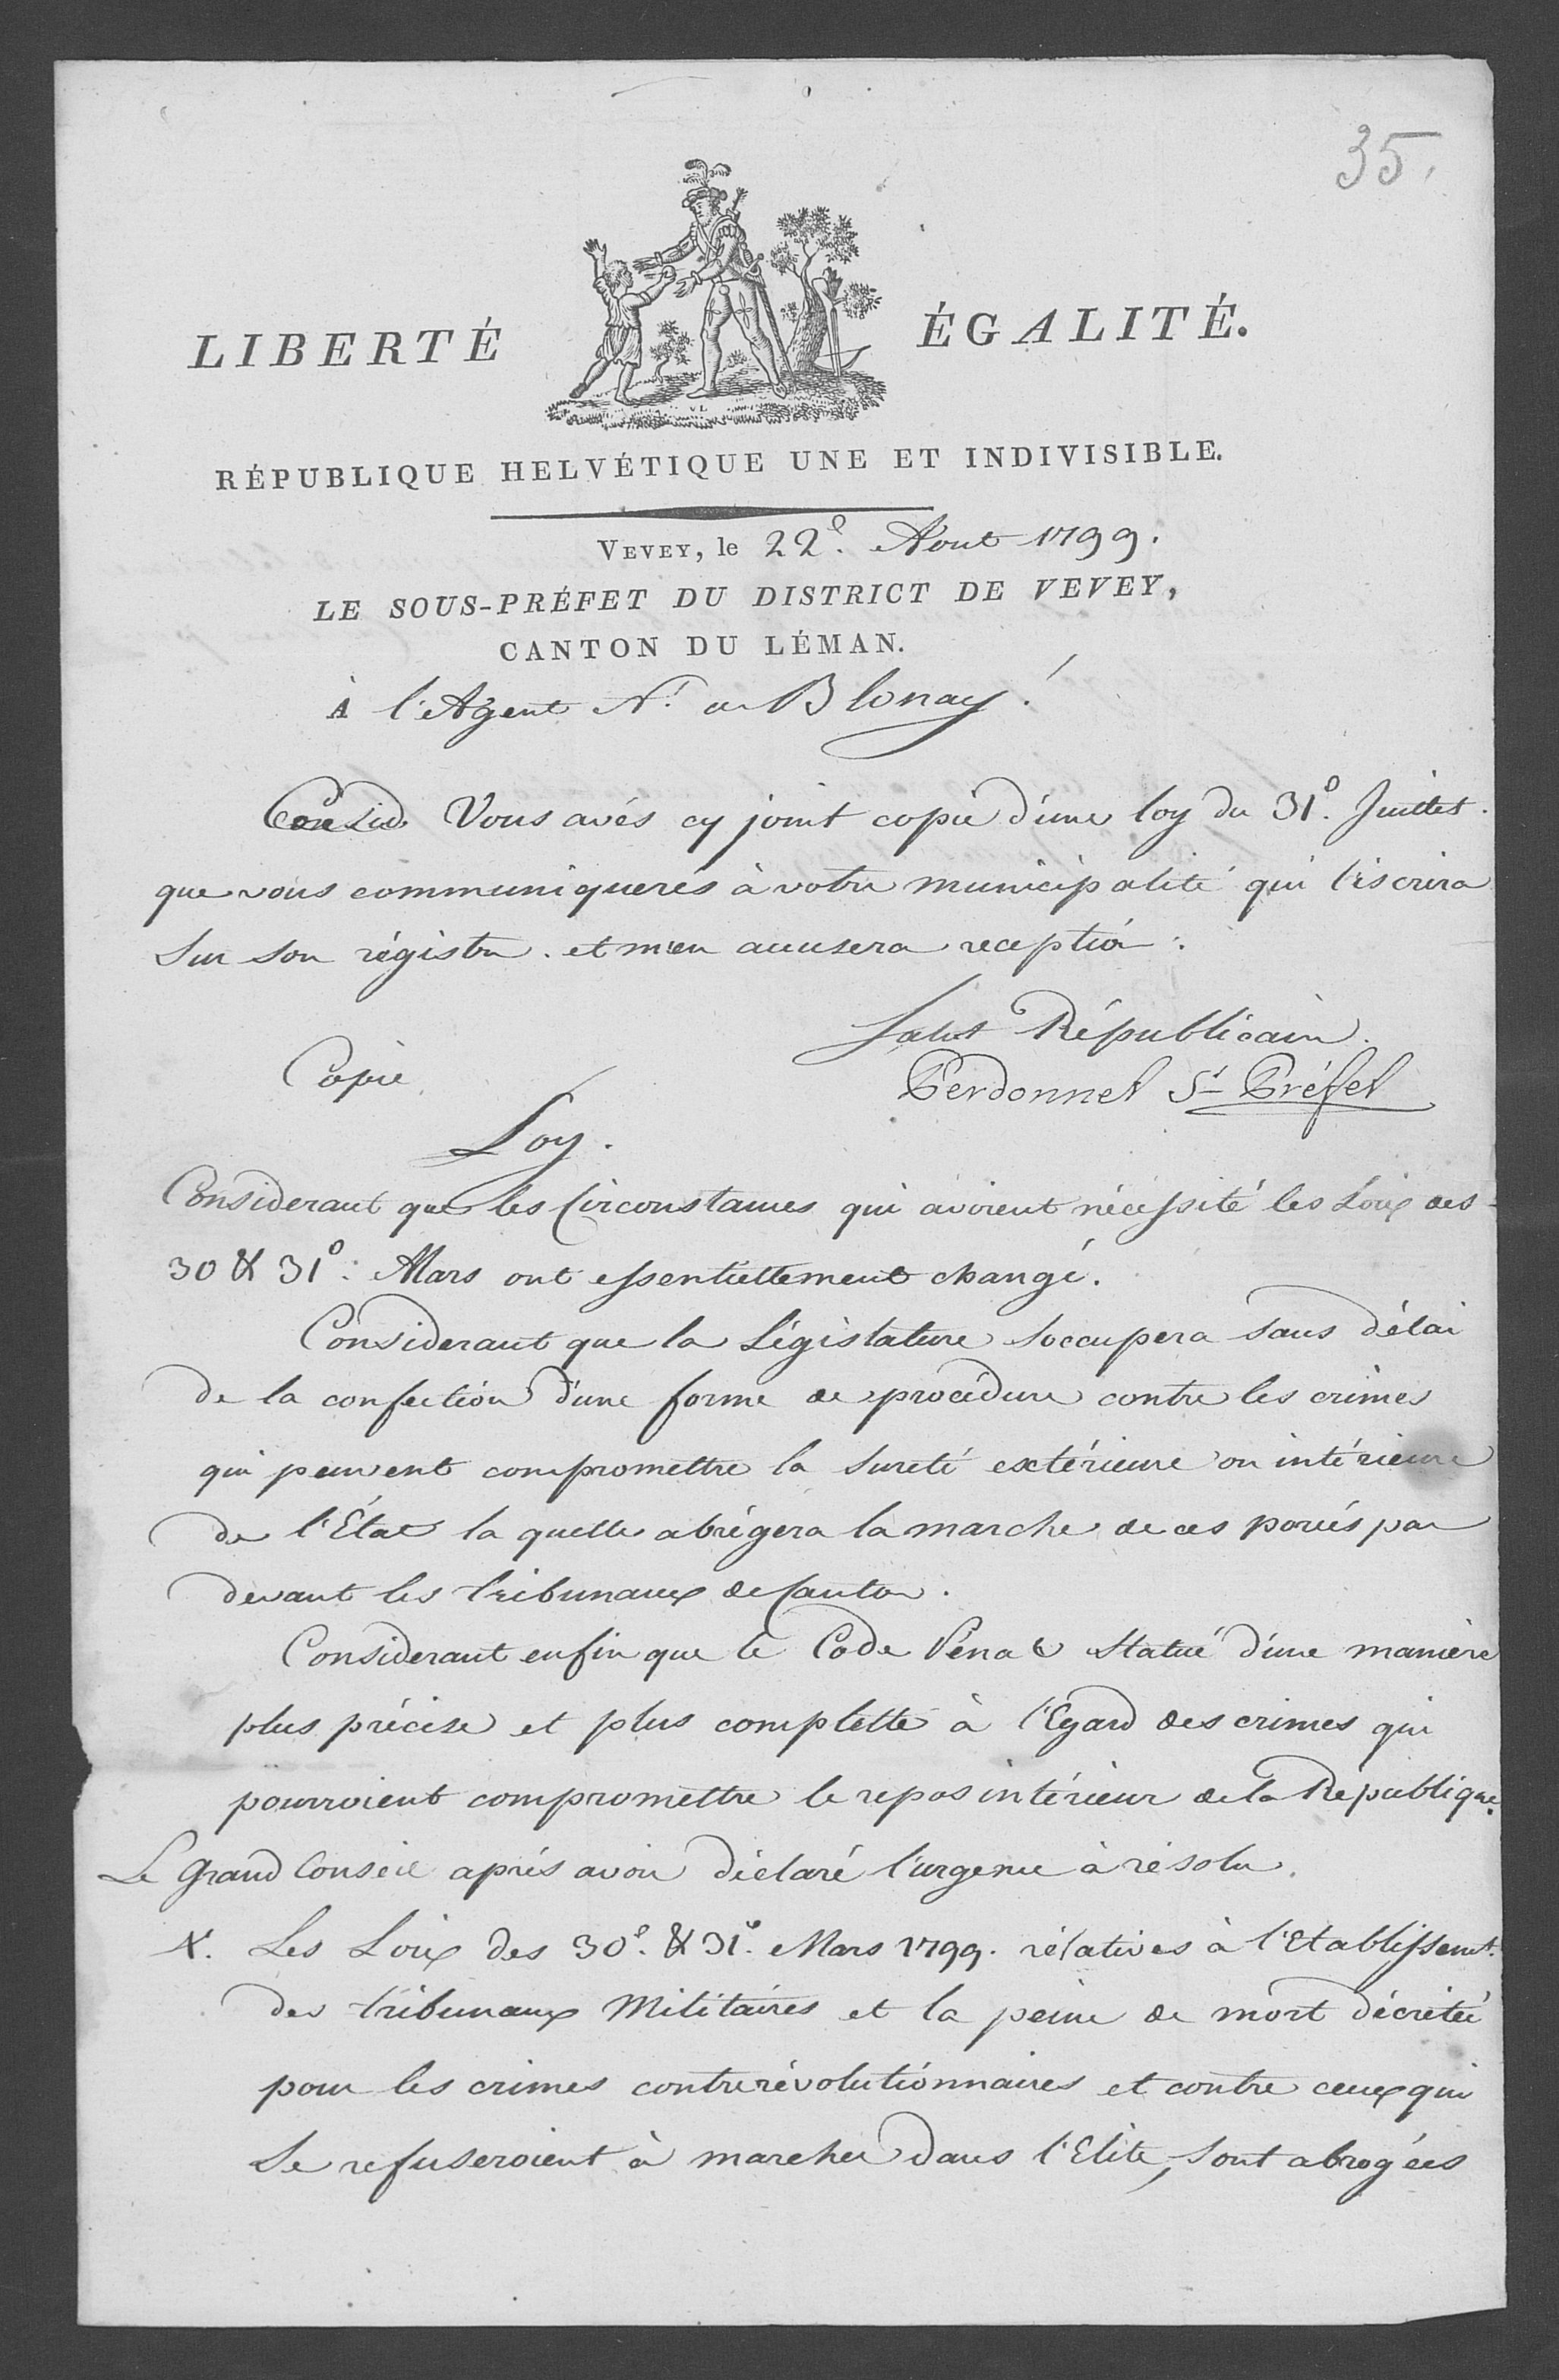 35.
LIBERTÉ ÉGALITÉ.
RÉPUBLIQUE HELVÉTIQUE UNE ET INDIVISIBLE.
VEVEY, le 22e. Aout 1799.
LE SOUS-PRÉFET DU DISTRICT DE VEVEY,
CANTON DU LÉMAN.
À l'Agent Nl. de Blonay!
Vous avés cy joint copie d'une loy du 31e. Juillet.
que vous communiquerés à votre municipalité qui l'iscrira
Sur son régistre. et m'en accusera reception:
Salut Républicain.
Copie
Perdonnet St Préfet
Loy.
Considerant que les Circonstances qui avoient nécessité les Loix des
30 & 31e: Mars ont essentiellement changé.
Considerant que la Législature s'occupera sans délai
de la confection d'une forme de procédure contre les crimes
qui peuvent compromettre la Sureté extérieure ou intérieure
de l'État la quelle abrégera la marche de ces par
devant les tribunaux de Canton.
Considerant enfin que le Code Penal Statué d'une manière
plus précise et plus complette à l'Egard des crimes qui
pourroient compromettre le repos intérieur de la Republique.
Le Grand Conseil aprés avoir déclaré l'urgence à résolu.
1. Les Loix des 30e. & 31e. Mars 1799. rélatives à l'Etablissemt.
des tribunaux Militaires et la peine de mort décrétée
pour les crimes contrerévolutionnaires et contre ceux qui
Se refuseroient à marcher dans l'Elite, sont abrogées